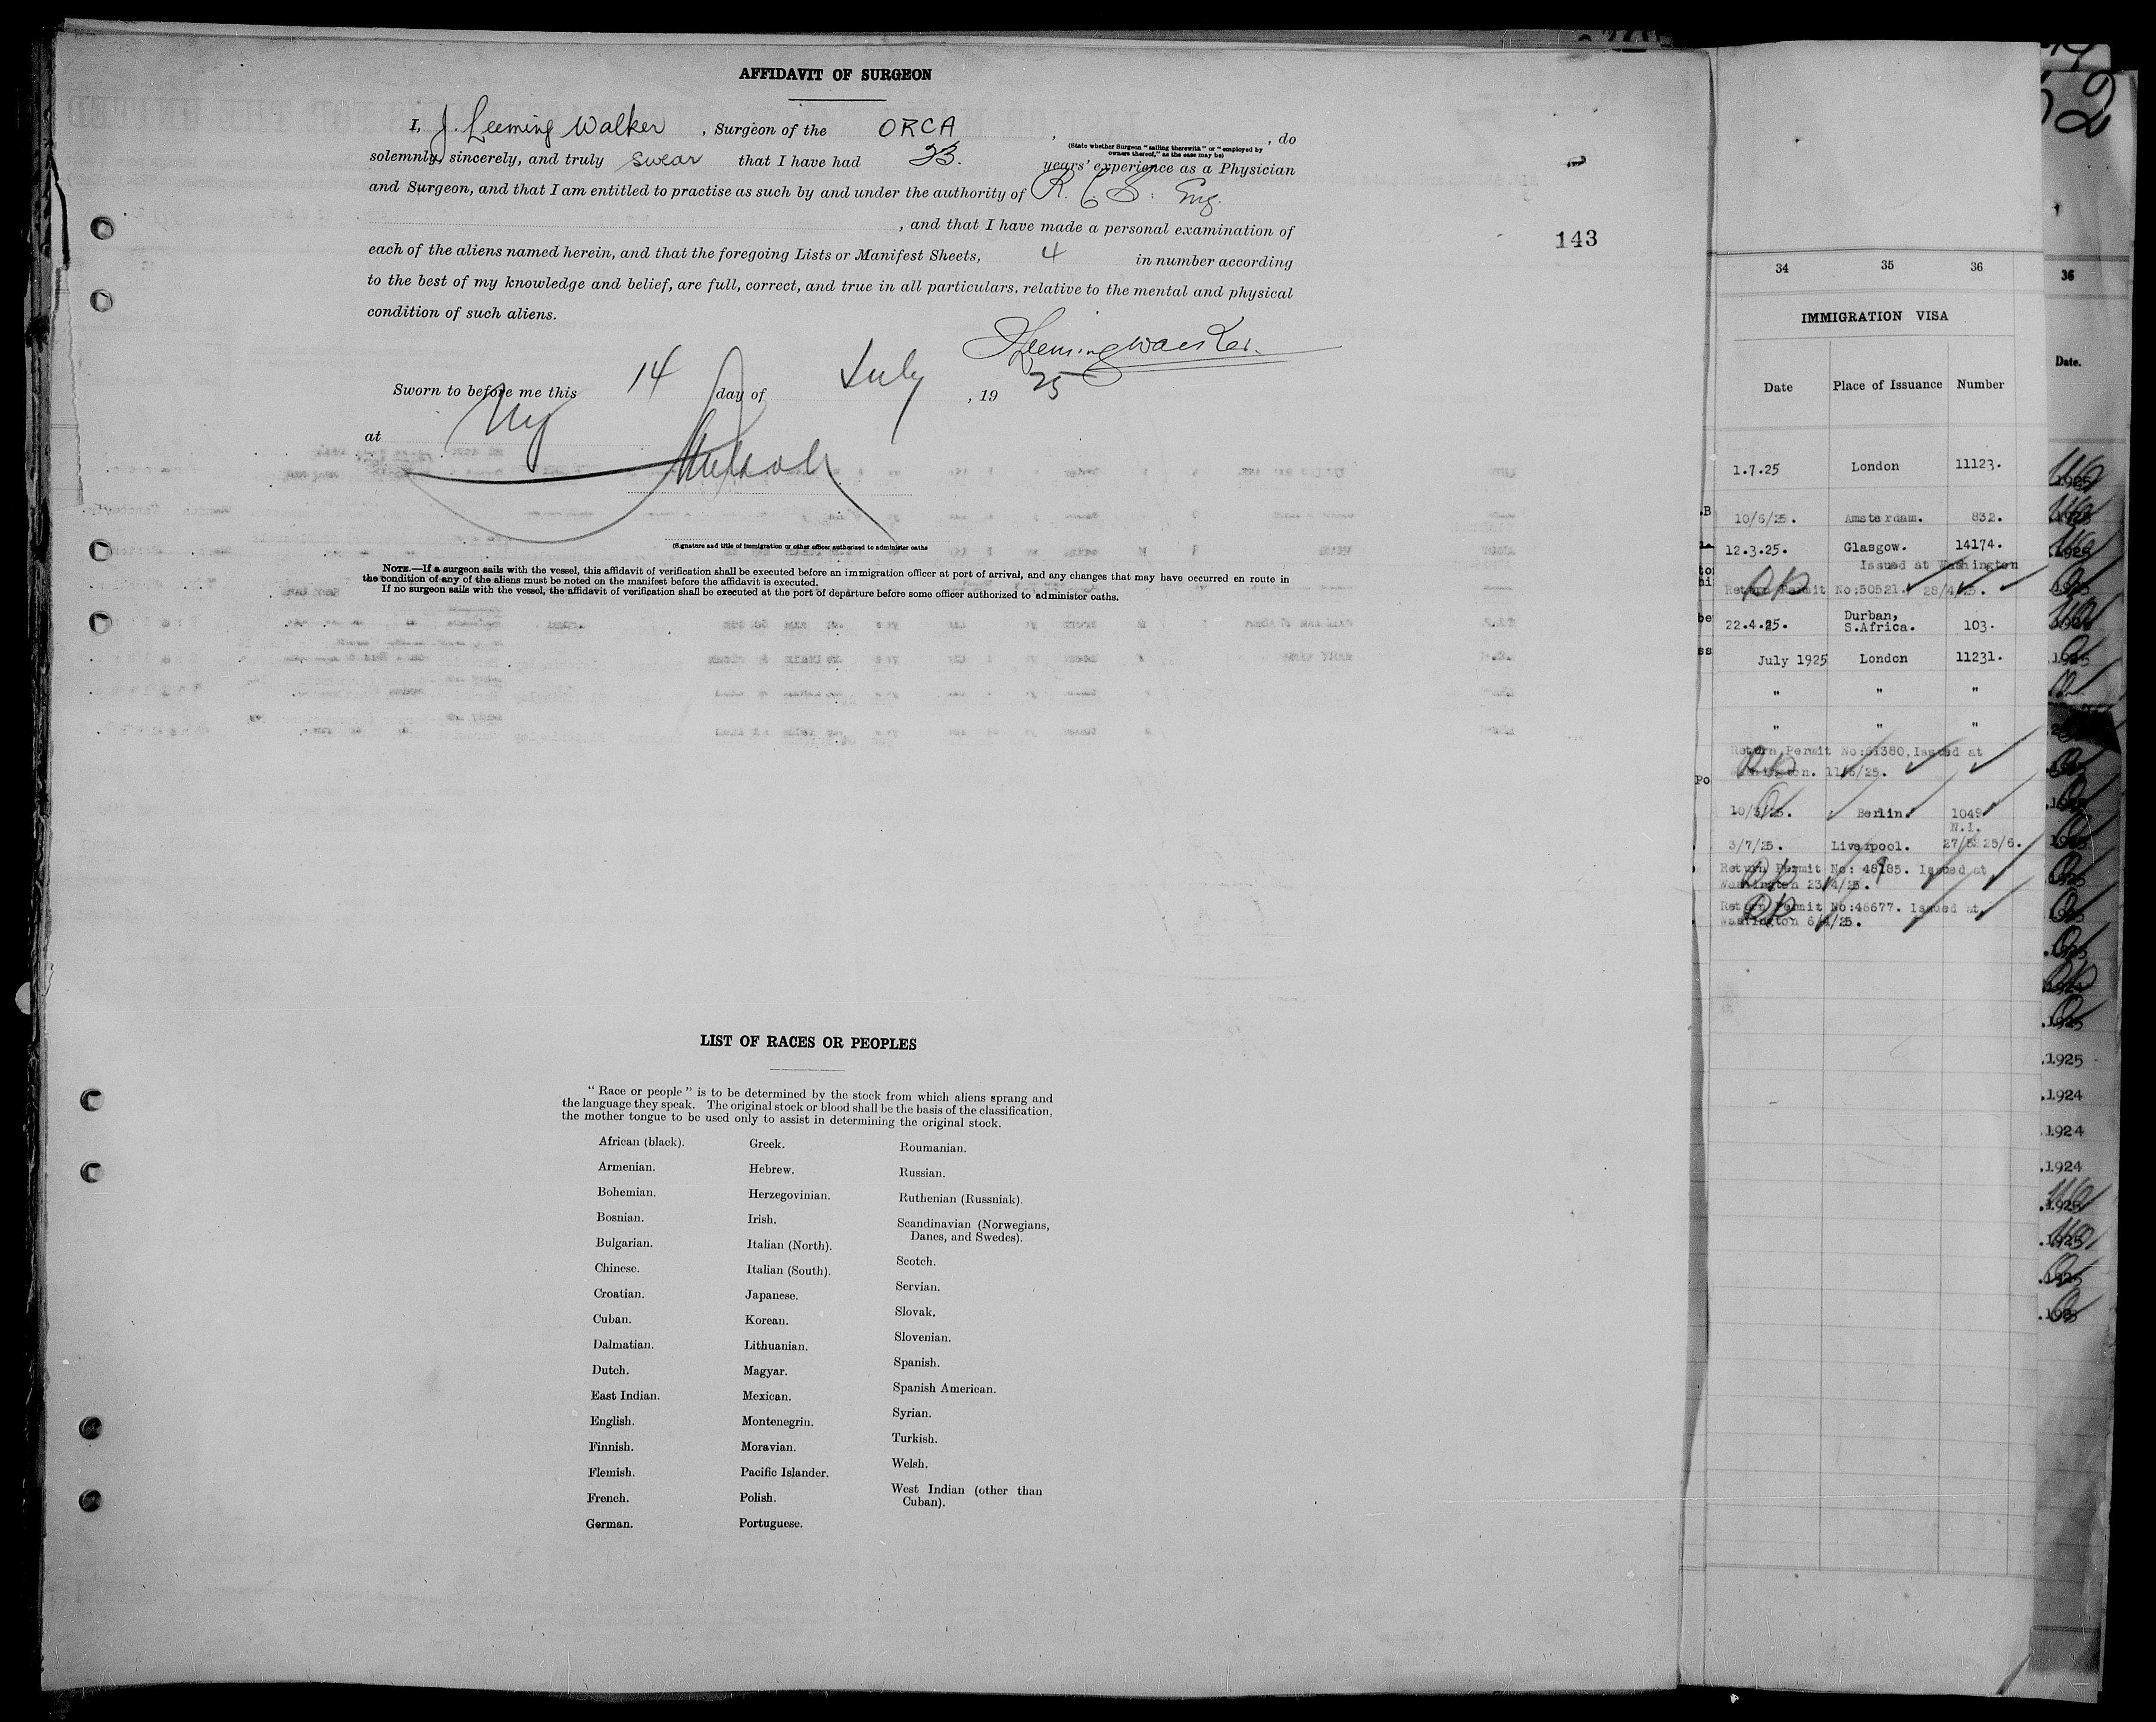 AFFIDAVIT OF SURGEON
I, J. Leeming Walker, Surgeon of the ORCA , , do
(State whether Surgeon "sailing therewith" or "employed by
owners thereof," as the case may be)
solemnly, sincerely, and truly swear that I have had 23. years' experience as a Physician
and Surgeon, and that I am entitled to practise as such by and under the authority of R. C. S. Eng.
, and that I have made a personal examination of
each of the aliens named herein, and that the foregoing Lists or Manifest Sheets, 4 in number according
to the best of my knowledge and belief, are full, correct, and true in all particulars, relative to the mental and physical
condition of such aliens.
J Leeming Walker.
Sworn to before me this 14 day of July , 19 25
at NY
(Signature and title of immigration or other officer authorized to administer oaths
NOTE.—If a surgeon sails with the vessel, this affidavit of verification shall be executed before an immigration officer at port of arrival, and any changes that may have occurred en route in
the condition of any of the aliens must be noted on the manifest before the affidavit is executed.
If no surgeon sails with the vessel, the affidavit of verification shall be executed at the port of departure before some officer authorized to administer oaths.
143
LIST OF RACES OR PEOPLES
"Race or people" is to be determined by the stock from which aliens sprang and
the language they speak. The original stock or blood shall be the basis of the classification,
the mother tongue to be used only to assist in determining the original stock.
African (black).
Armenian.
Bohemian.
Bosnian.
Bulgarian.
Chinese.
Croatian.
Cuban.
Dalmatian.
Dutch.
East Indian.
English.
Finnish.
Flemish.
French.
German.
Greek.
Hebrew.
Herzegovinian.
Irish.
Italian (North).
Italian (South).
Japanese.
Korean.
Lithuanian.
Magyar.
Mexican.
Montenegrin.
Moravian.
Pacific Islander.
Polish.
Portuguese.
Roumanian.
Russian.
Ruthenian (Russniak).
Scandinavian (Norwegians,
Danes, and Swedes).
Scotch.
Servian.
Slovak.
Slovenian.
Spanish.
Spanish American.
Syrian.
Turkish.
Welsh.
West Indian (other than
Cuban).
34 35 36
IMMIGRATION VISA
Date Place of Issuance Number
1.7.25 London 11123.
10/6/25. Amsterdam. 832.
12.3.25. Glasgow. 14174.
Issued at Washington
Return Permit No:50521. 28/4/25.
22.4.25. Durban, S.Africa. 103.
July 1925 London 11231.
" " "
" " "
Return Permit No:61380, Issued at
Washington. 11/6/25.
10/3/25. Berlin. 1049
N.I.
3/7/25. Liverpool.
Return Permit No: 48185. Issued at
Washington 23/4/25.
Return Permit No:46677. Issued at
Washington 6/4/25.
36
Date.
.1925
.1924
.1924
.1924
.1925
.1925
.1925